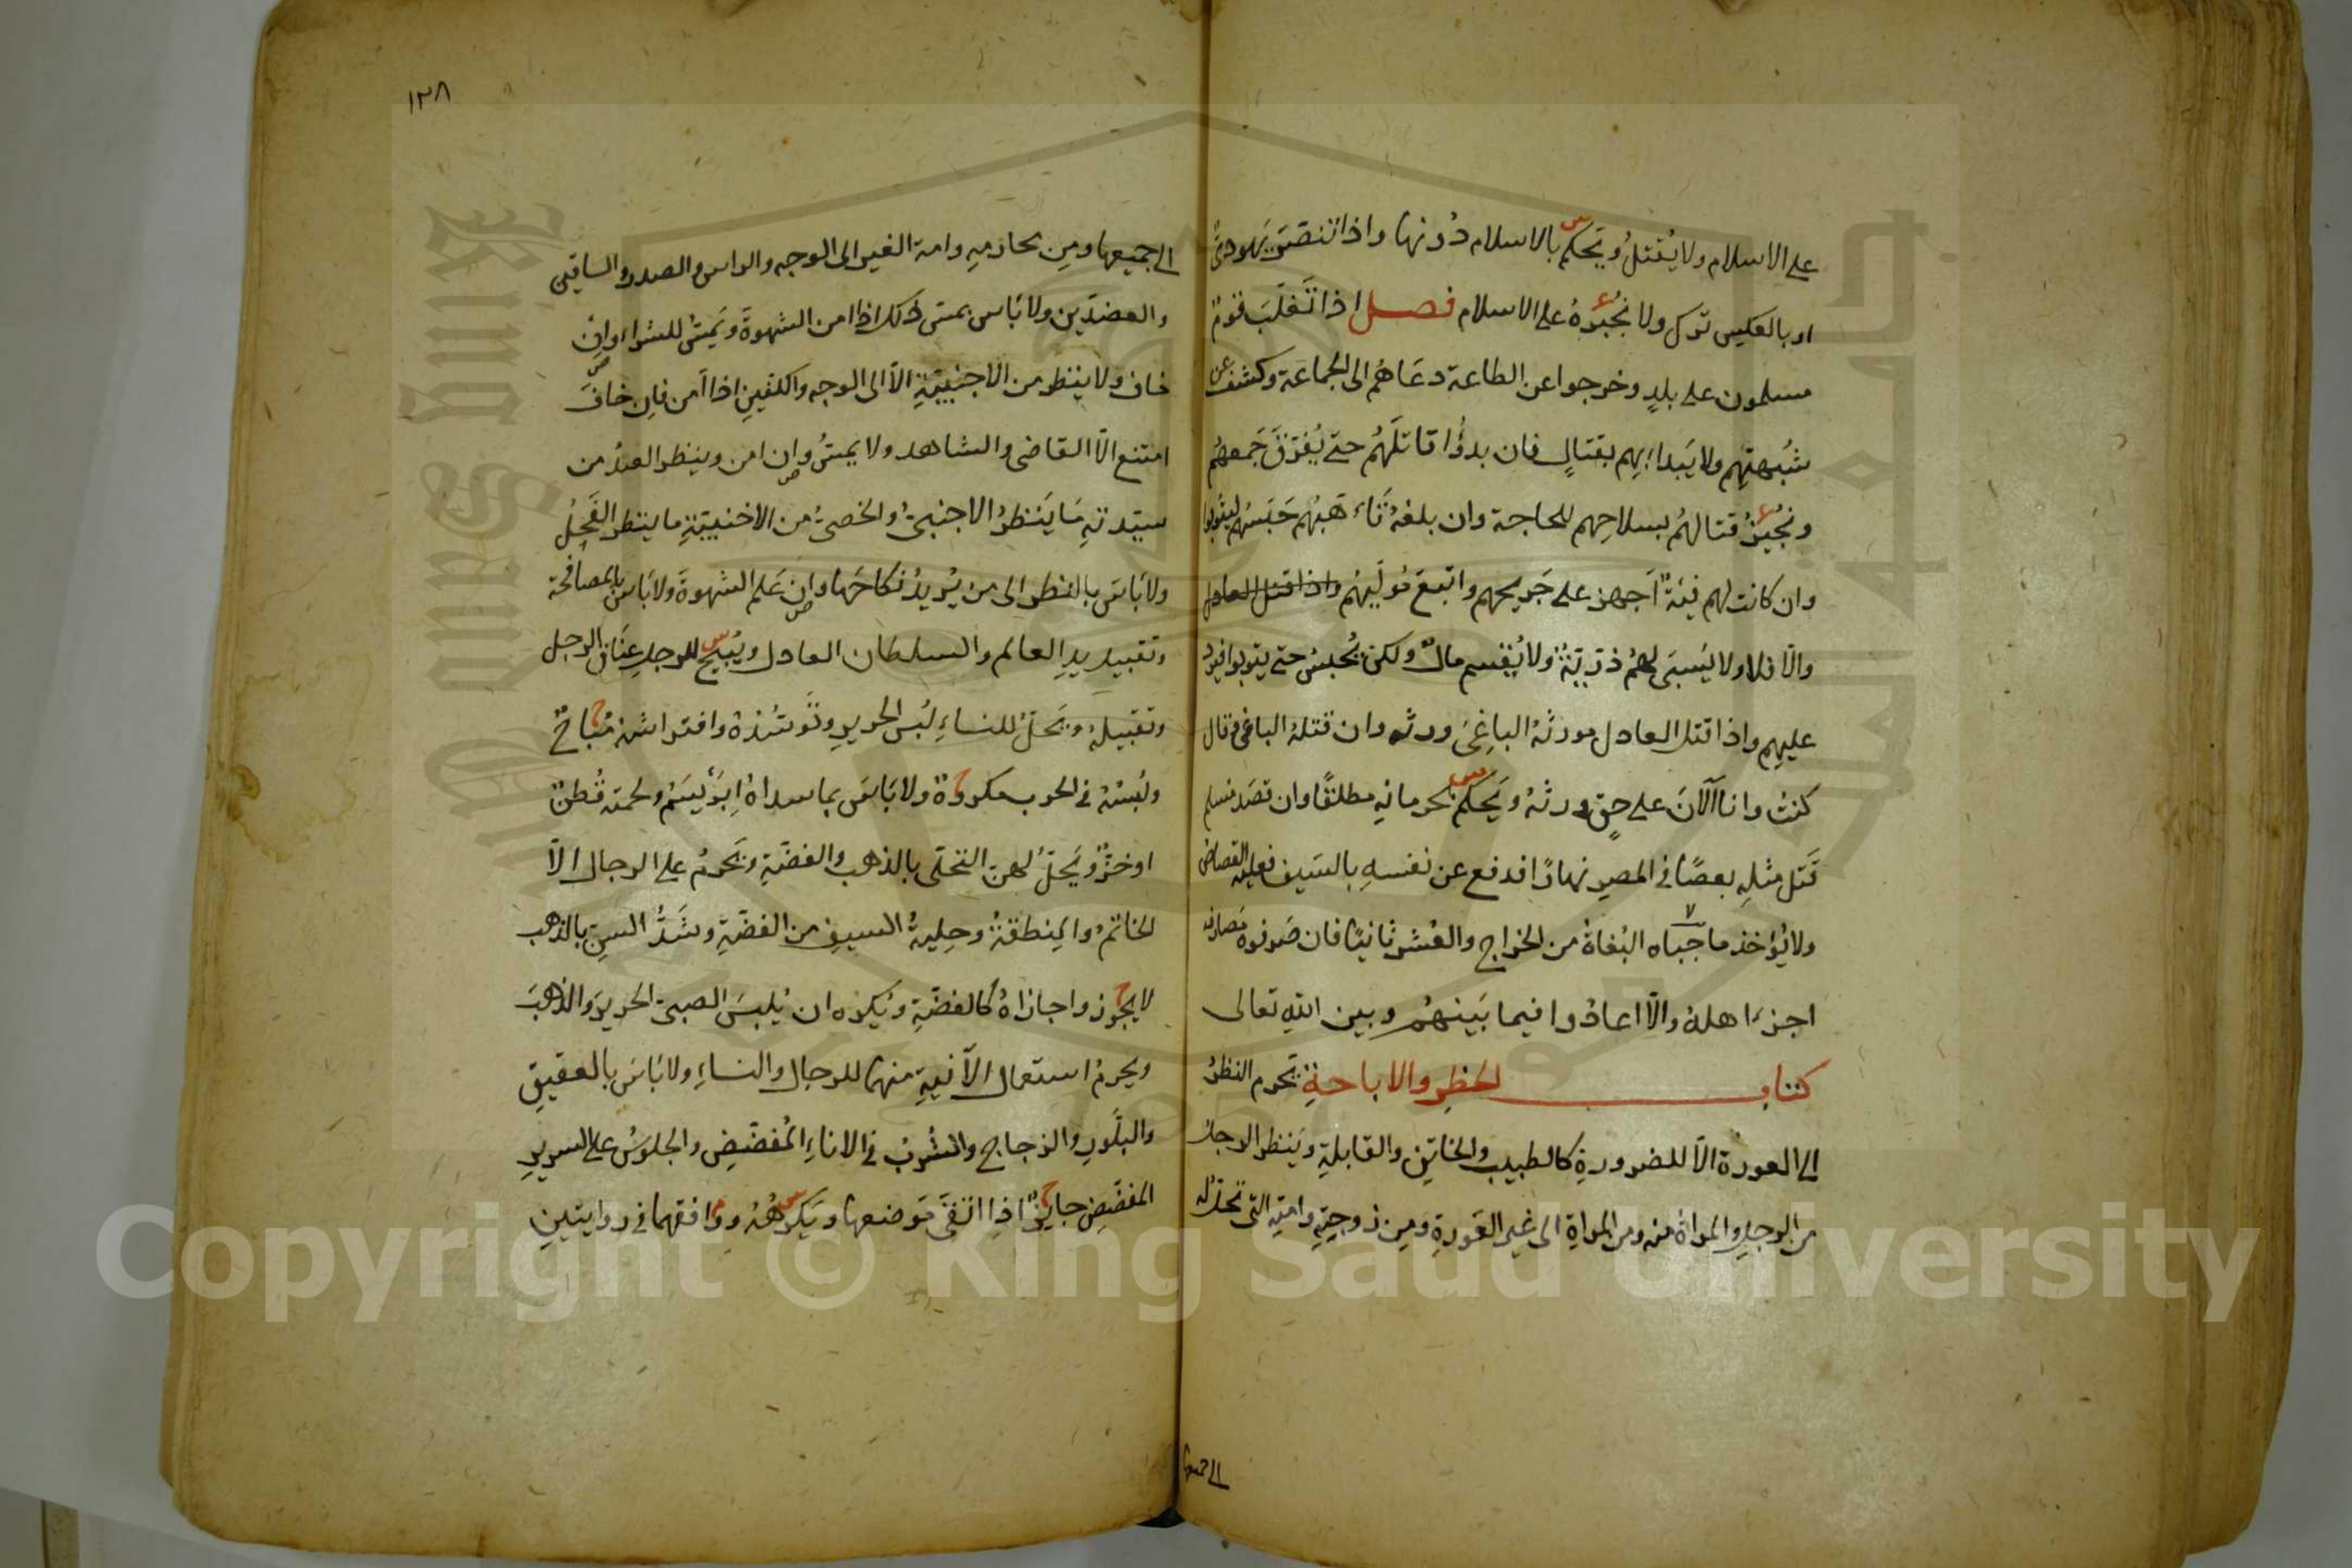 على الاسلام ولا يُقتلُ ويَحكم بالاسلام دُونها واذا تنصَّرَ يَهوديٌ
او بالعكس ترك ولا نُجبرهُ على الاسلام فصل اذا تَغلَّبَ قومٌ
مسلمون على بلدٍ وخرجوا عن الطاعة دعَاهُم الى الجماعة وكشف عن
شُبهتِهم ولا يَبدأ بِهم بقتالٍ فان بدؤُا قاتلَهُم حتى يُفرّقَ جَمعهُم
ونُجيزُ قتالهُم بسلاحِهم للحاجة وان بلغهُ تَأهبُهم حَبَسَهُم ليتوبوا
وان كانت لهم فئةٌ اَجهز على جَريحهم واتبعَ مُولّيَهُم واذا قتل العادل
والّا فلا ولا يُسبَى لهُم ذريّةٌ ولا يُقسم مالٌ ولكن يُحبسُ حتى يتوبوا فيردُ
عليهم واذا قتل العادل مورثهُ الباغِىَ ورثه وان قتلهُ الباغى وقال
كنتُ وانا اَلآنَ على حقٍ ورثهُ ويَحكم بحرمانِه مطلقًا وان قصَد مسلم
قَتل مثلِه بعصًا فى المصر نهارًا فدفع عن نفسهِ بالسَيف فعليه القصاص
ولا يُؤخذ ما جبَاه البُغاةُ من الخراج والعُشر ثانيًا فان صَرفوه مَصارفه
اجزءَ اهلهُ والّا اعادُوا فيما بَينهُم وبين اللهِ تعالى
كتاب الحَظرِ والاباحةِ يَحرم النظرُ
الى العورة الّا للضرورةِ كالطبيب والخاتِن والقابلةِ ويَنظر الرجل
من الرجلِ والمراةُ منه ومن المراةِ الى غير العَورةِ ومِن زوجتِهِ وامتِهِ التى تحلّ له
الى جميعها
١٢٨
الى جميعها ومِن محارمِهِ وامة الغير الى الوجه والراس والصدر والساقين
والعضدَين ولا بَاس بمسّ ذلك اذا امن الشهوةَ ويَمسُ للشراء وان
خاف ولا ينظر من الاجنبيّةِ الّا الى الوجه والكفّينِ اذا اَمن فاِن خافَ
امتنع الّا القاضى والشاهد ولا يمسُ وان امن وينظر العبدُ من
سيّدتهِ مَا يَنظرُ الاجنبىُ والخصىُ من الاجنبيّةِ ما ينظر الفَحلُ
ولا بَاسَ بالنظر الى من يُريدُ نكاحَها وان عَلم الشهوةَ ولا بَاس بالمصافحة
وتقبيل يدِ العالم والسلطان العادل ويُبيحُ للرجلِ عِنَاق الرجل
وتقبيلهُ ويَحلُّ للنساءِ لُبس الحريرِ وتَوسُّدهُ وافتراشهُ مُباحٌ
ولُبسُهُ فى الحرب مكروهٌ ولا بَاسَ بما سداهُ اِبرَيسَمٌ ولحمته قُطنٌ
او خزٌ ويَحلُّ لهنّ التحلّى بالذهبِ والفضّةِ ويَحرمُ على الرجال الّا
الخاتَمُ والمِنطقةُ وحِليةُ السيف من الفضّةِ وشَدُّ السنِ بالذهب
لا يجوز واجازاهُ كالفضّةِ ويُكره ان يُلبسَ الصبىّ الحريرَ والذهبَ
ويحرمُ استعمال الآنيةِ منهما للرجال والنساءِ ولا بَاسَ بالعقيقِ
والبلّورِ والزجاجِ والشُربُ فى الاناءِ المُفضّضِ والجلوسُ على السريرِ
المفضّضِ جايزٌ اذا اتّقَى مَوضعها ويَكرهُهُ ووافقهما فى روايتينِ